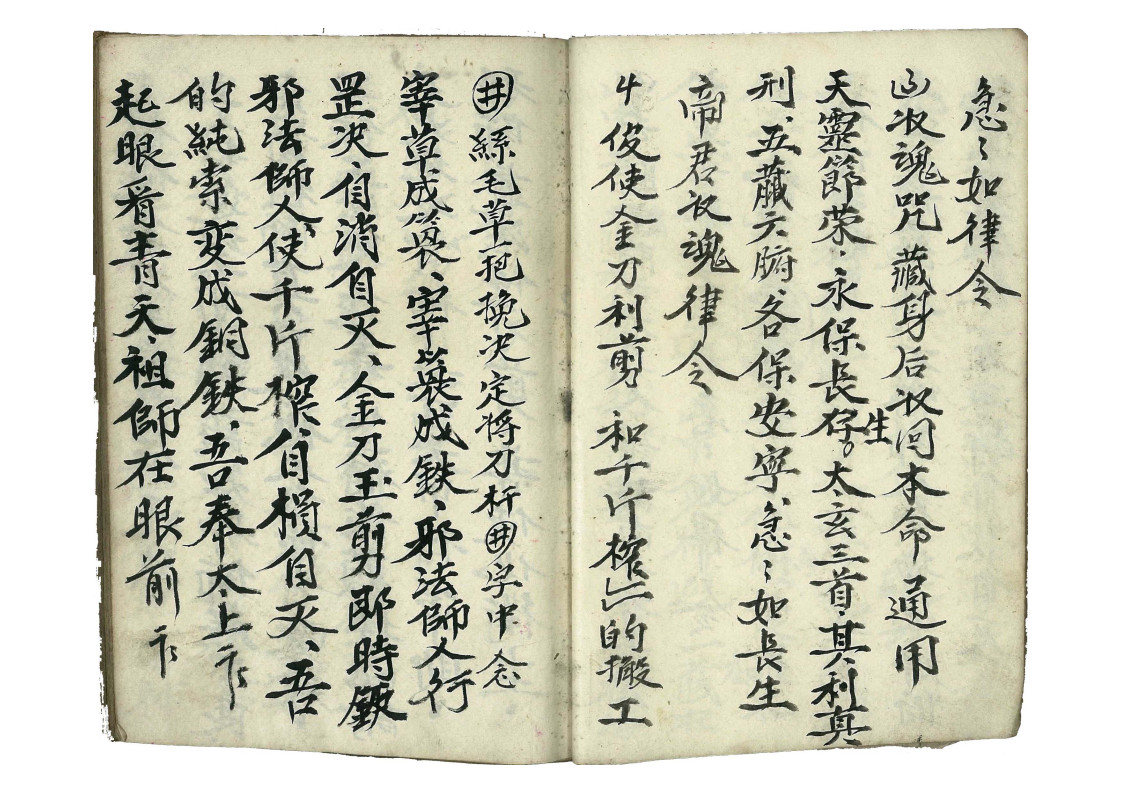 急〻如律令
收魂咒 藏身后收回本命通用
天靈節荣、永保長存。太玄三首、其利真
生
刑、五藏六腑、各保安寧、急〻如長生
帝君收魂律令
俊使金刀利剪 和千斤榨 的搬工
井 絲毛草把挽决定将刀杆井字中念
宰草成簑、宰簑成鉄、邪法師人行
罡决、自消自灭、金刀玉剪即時
邪法師人使千斤榨、自損自灭、吾
的純索变成銅鉄、吾奉太上
起眼看青天、祖師在眼前